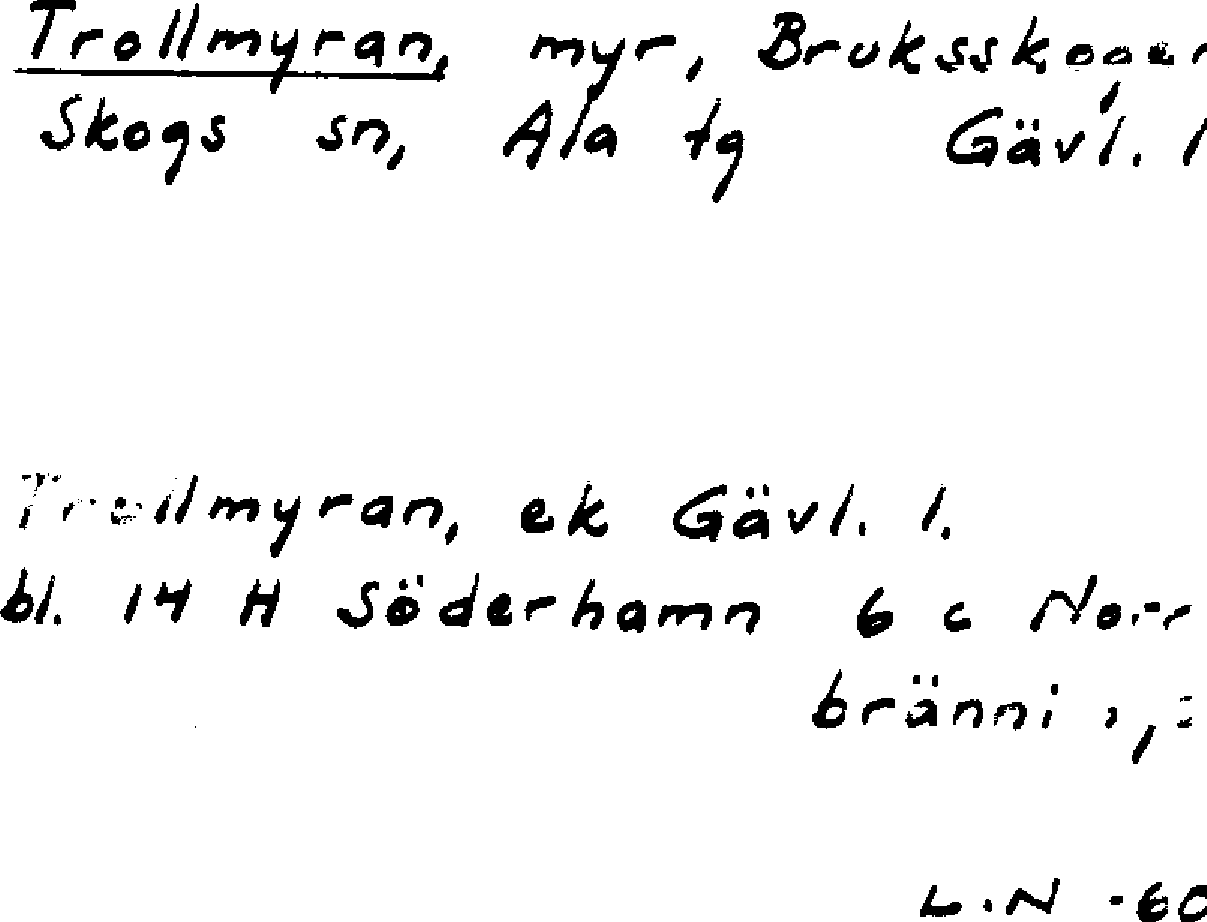 Trollmyran, myr, Bruksskogen
Skogs sn, Ala tg Gävl. l
Trollmyran, ek Gävl. l.
bl. 14 H Söderhamn 6 c Norr
L.N -60